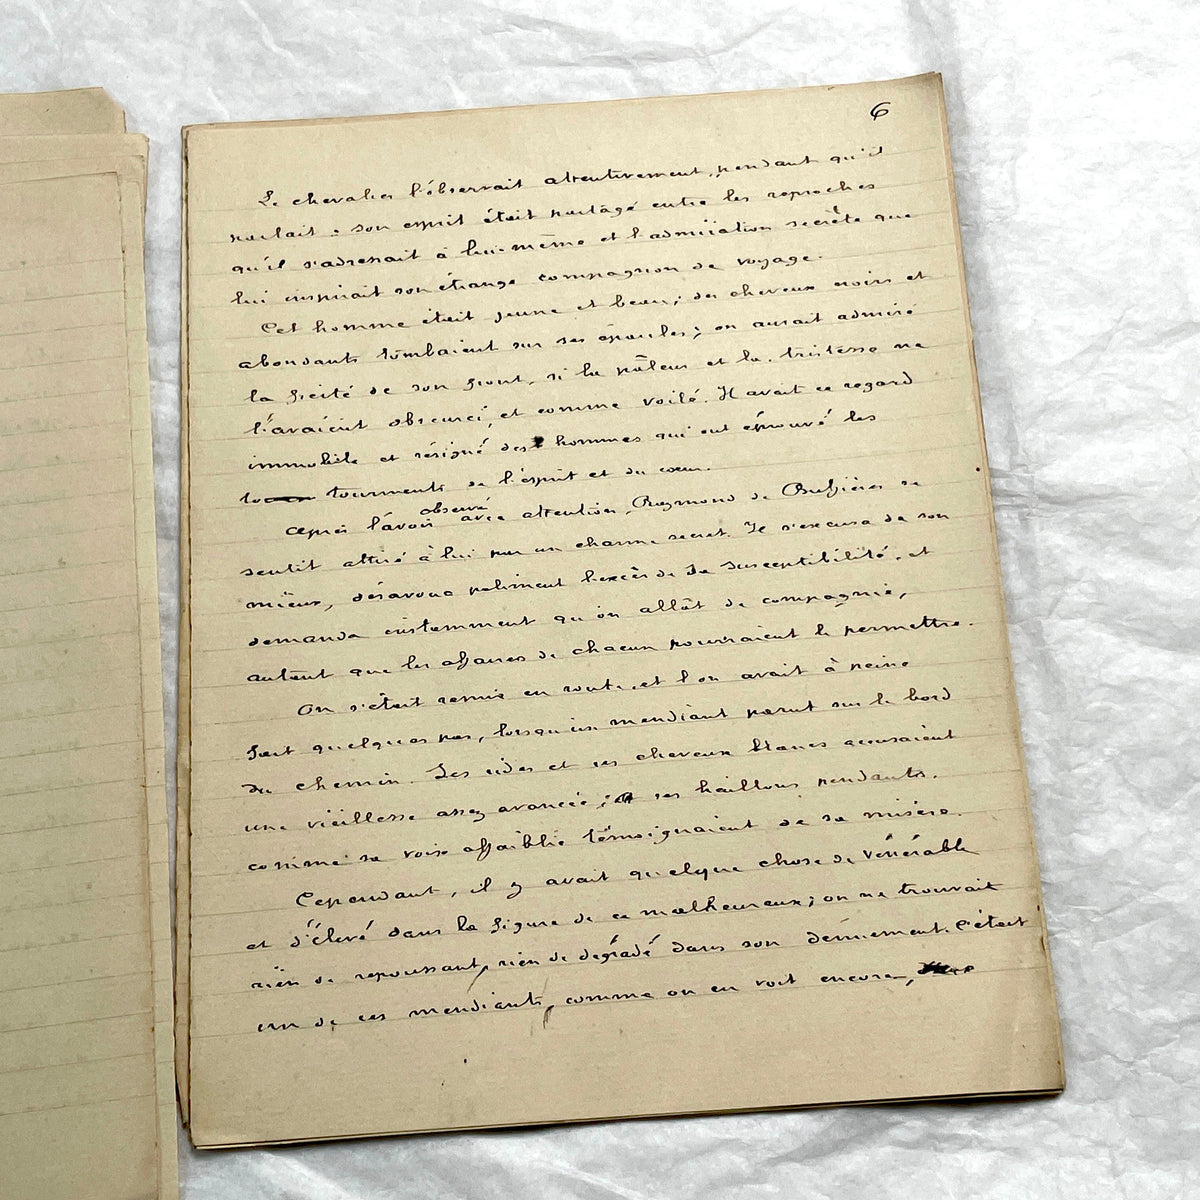 6
Le chevalier l'observait attentivement, pendant qu'il
parlait : son esprit était partagé entre les reproches
qu'il s'adressait à lui-même et l'admiration secrète que
lui inspirait son étrange compagnon de voyage.
Cet homme était jeune et beau ; des cheveux noirs et
abondants tombaient sur ses épaules ; on aurait admiré
la fierté de son front, si la pâleur et la tristesse ne
l'avaient obscurci, et comme voilé. Il avait ce regard
immobile et résigné des hommes qui ont éprouvé les
tourments de l'esprit et du cœur.
observé
Après l'avoir avec attention, Raymond de se
sentit attiré à lui par un charme secret. Il s'excusa de son
mieux, désavoua poliment l'excès de sa susceptibilité, et
demanda instamment qu'on allât de compagnie,
autant que les affaires de chacun pourraient le permettre.
On s'était remis en route, et l'on avait à peine
fait quelques pas, lorsqu'un mendiant parut sur le bord
du chemin. Ses rides et ses cheveux blancs accusaient
une vieillesse assez avancée ; ses haillons pendants,
comme sa voix affaiblie témoignaient de sa misère.
Cependant, il y avait quelque chose de vénérable
et d'élevé dans la figure de ce malheureux ; on ne trouvait
rien de repoussant, rien de dégradé dans son dénuement. C'était
un de ces mendiants, comme on en voit encore,